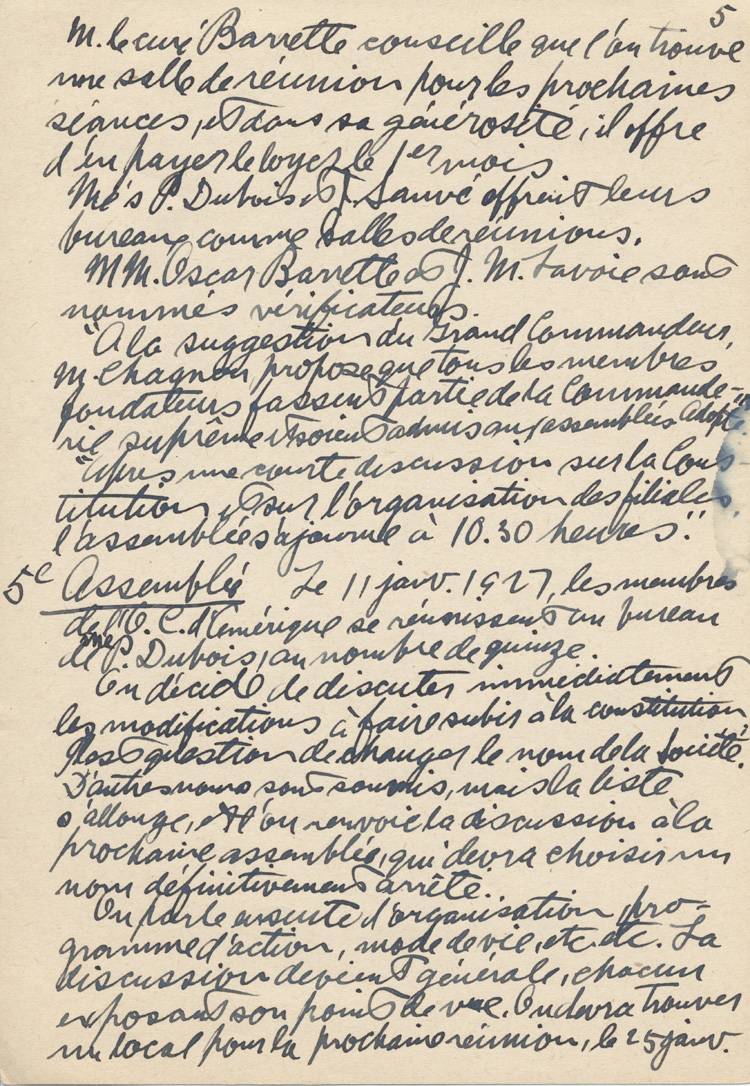 5
M. le curé Barrette conseille que l'on trouve
une salle de réunion pour les prochaines
séances, et dans sa générosité, il offre
d'en payer le loyer le 1er mois
Mes P. Dubois et J. Sauvé offrent leurs
bureaux comme salles de réunions.
MM. Oscar Barrette et J. M. Lavoie sont
nommés vérificateurs.
"A la suggestion du Grand Commandeur,
M. Chagnon propose que tous les membres
fondateurs fassent partie de la Commande-
rie suprême et soient admis aux assemblées. Adopté"
"Après une courte discussion sur la Cons
titution et sur l'organisation des filiales,
l'assemblée s'ajourne à 10.30 heures."
5e Assemblée Le 11 janv. 1927, les membres
de l'O. C. d'Amérique se réunissent au bureau
de Me P. Dubois, au nombre de quinze.
On décide de discuter immédiatement
les modifications à faire subir à la constitution
Il est question de changer le nom de la Société.
D'autres noms sont soumis, mais la liste
s'allonge, et l'on renvoie la discussion à la
prochaine assemblée, qui devra choisir un
nom définitivement arrêté.
On parle ensuite d'organisation, pro-
gramme d'action, mode de vie, etc. etc. La
discussion devient générale, chacun
exposant son point de vue. On devra trouver
un local pour la prochaine réunion, le 25 janv.